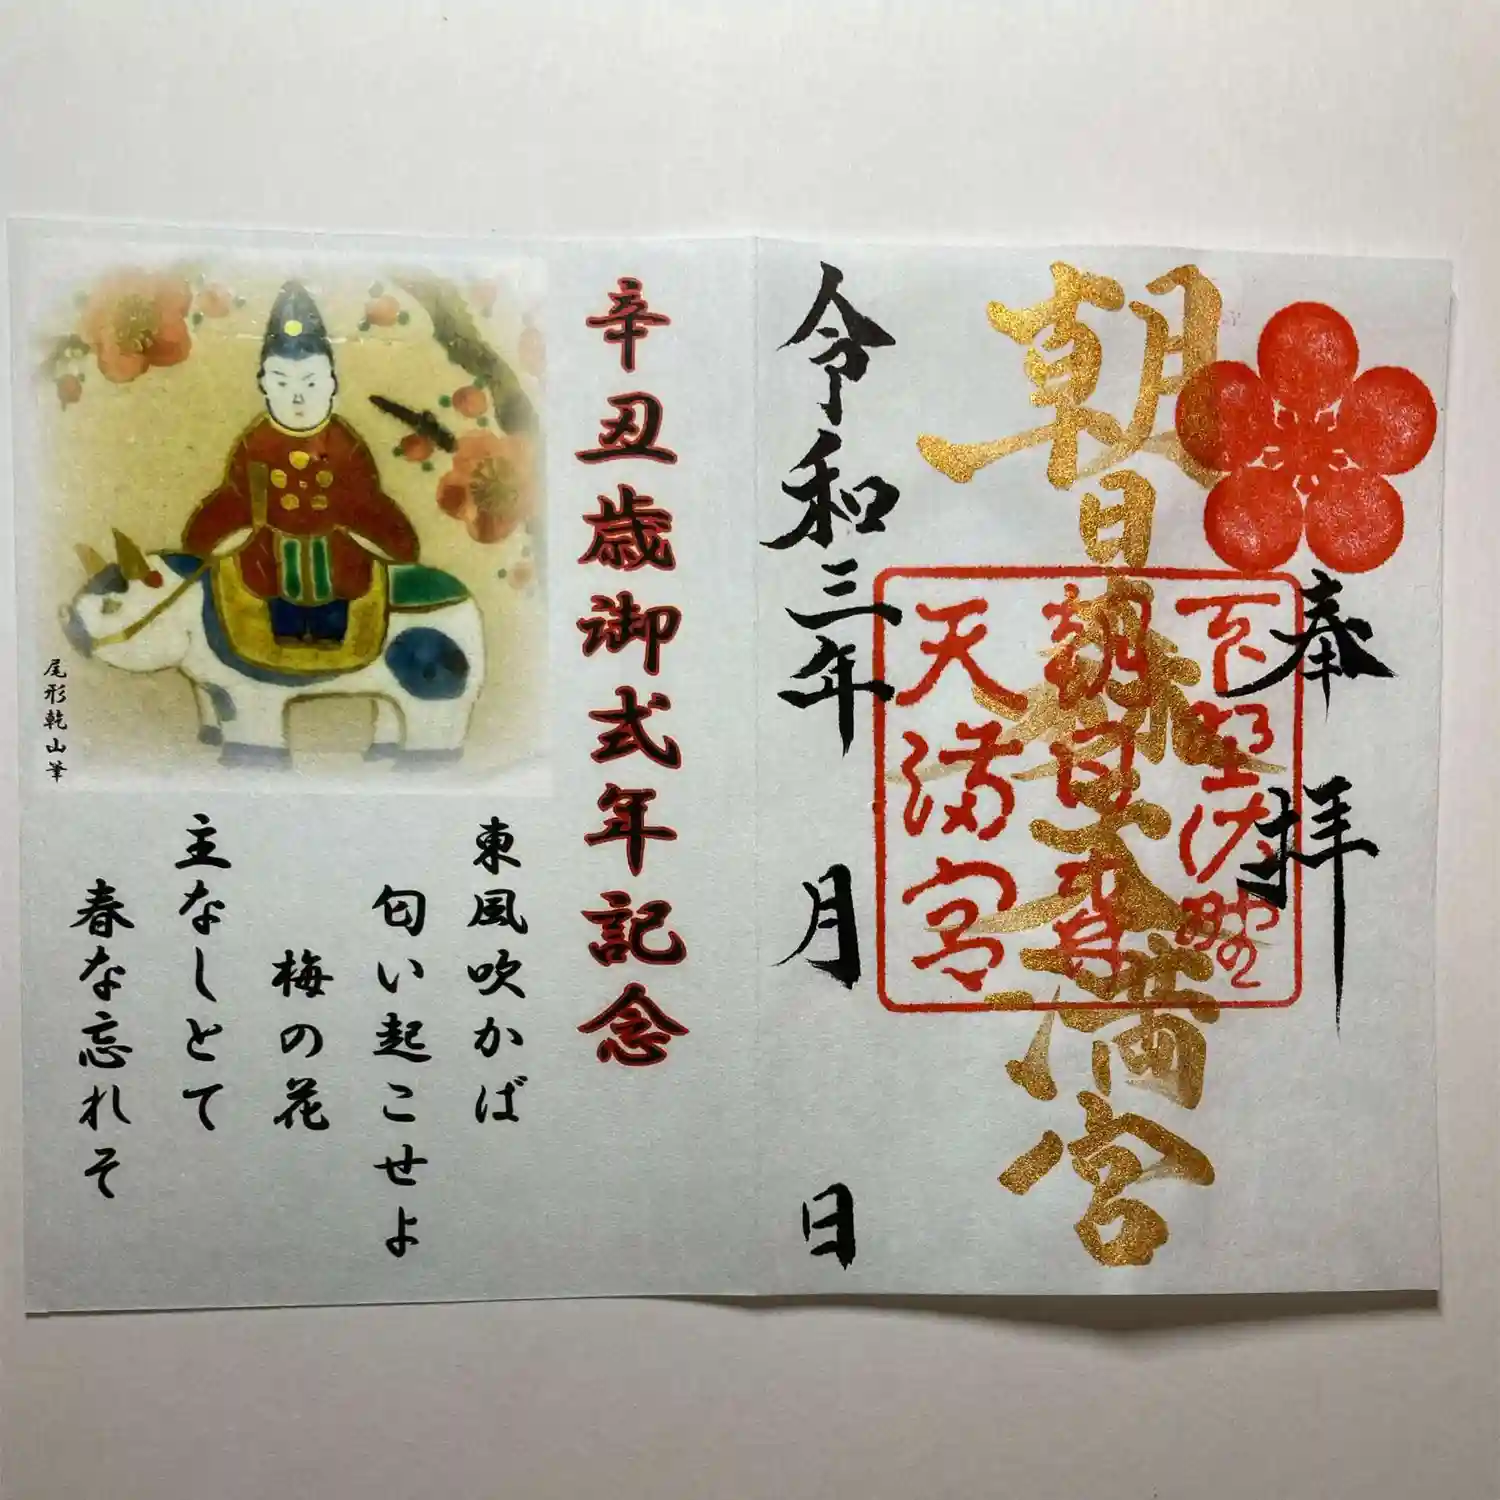 奉拝
朝日森天満宮
下野佐野
朝日森
天満宮
令和三年 月 日
辛丑歳御式年記念
尾形乾山筆
東風吹かば
匂い起こせよ
梅の花
主なしとて
春な忘れそ